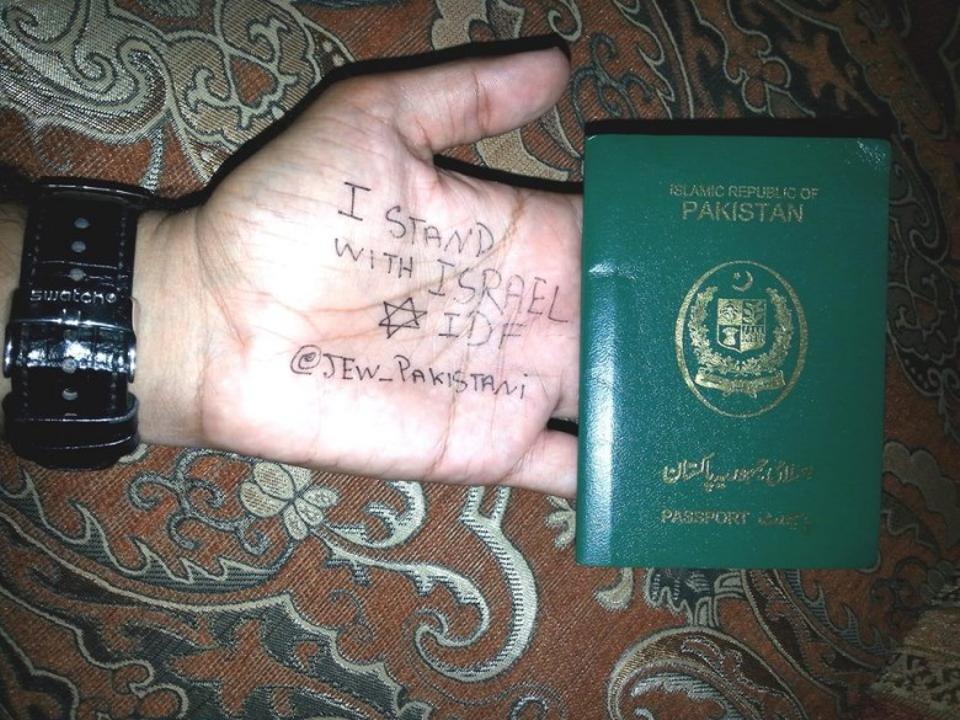 I STAND
WITH ISRAEL
IDF
@JEW_PAKISTANi
swatch
ISLAMIC REPUBLIC OF
PAKISTAN
اسلامی جمہوریہ پاکستان
PASSPORT پاسپورٹ